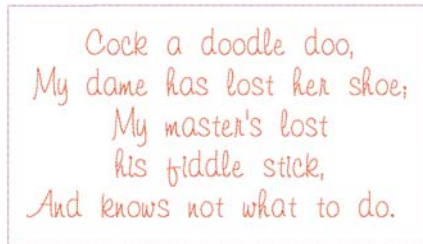 Cock a doodle doo,
My dame has lost her shoe;
My master's lost
his fiddle stick,
And knows not what to do.